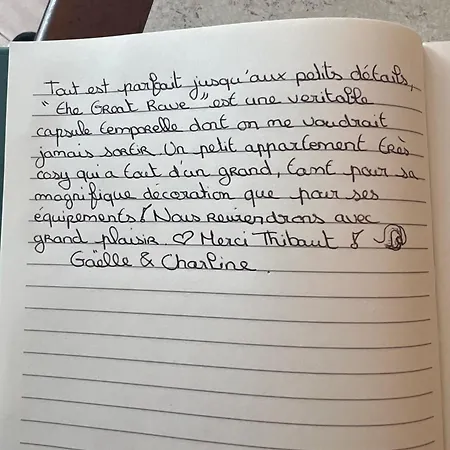 Tout est parfait jusqu'aux petits détails,
"The Great Rave" est une veritable
capsule temporelle dont on me voudrait
jamais sortir Un petit appartement très
cosy qui a tout d'un grand, tant pour sa
magnifique décoration que pour ses
équipements! Nous reviendrons avec
grand plaisir ♡ Merci Thibaut
Gaëlle & Charline.